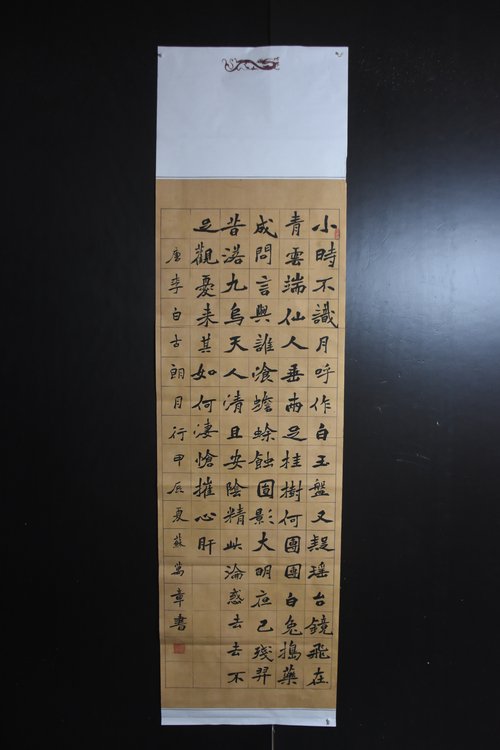 小時不識月呼作白玉盤又疑瑤台鏡飛在
青雲端仙人垂兩足桂樹何團團白兔搗藥
成問言與誰飡蟾蜍蝕圓影大明夜已殘羿
昔落九烏天人清且安陰精此淪惑去去不
足觀憂來其如何凄愴摧心肝
唐李白古朗月行甲辰夏蘇萬章書